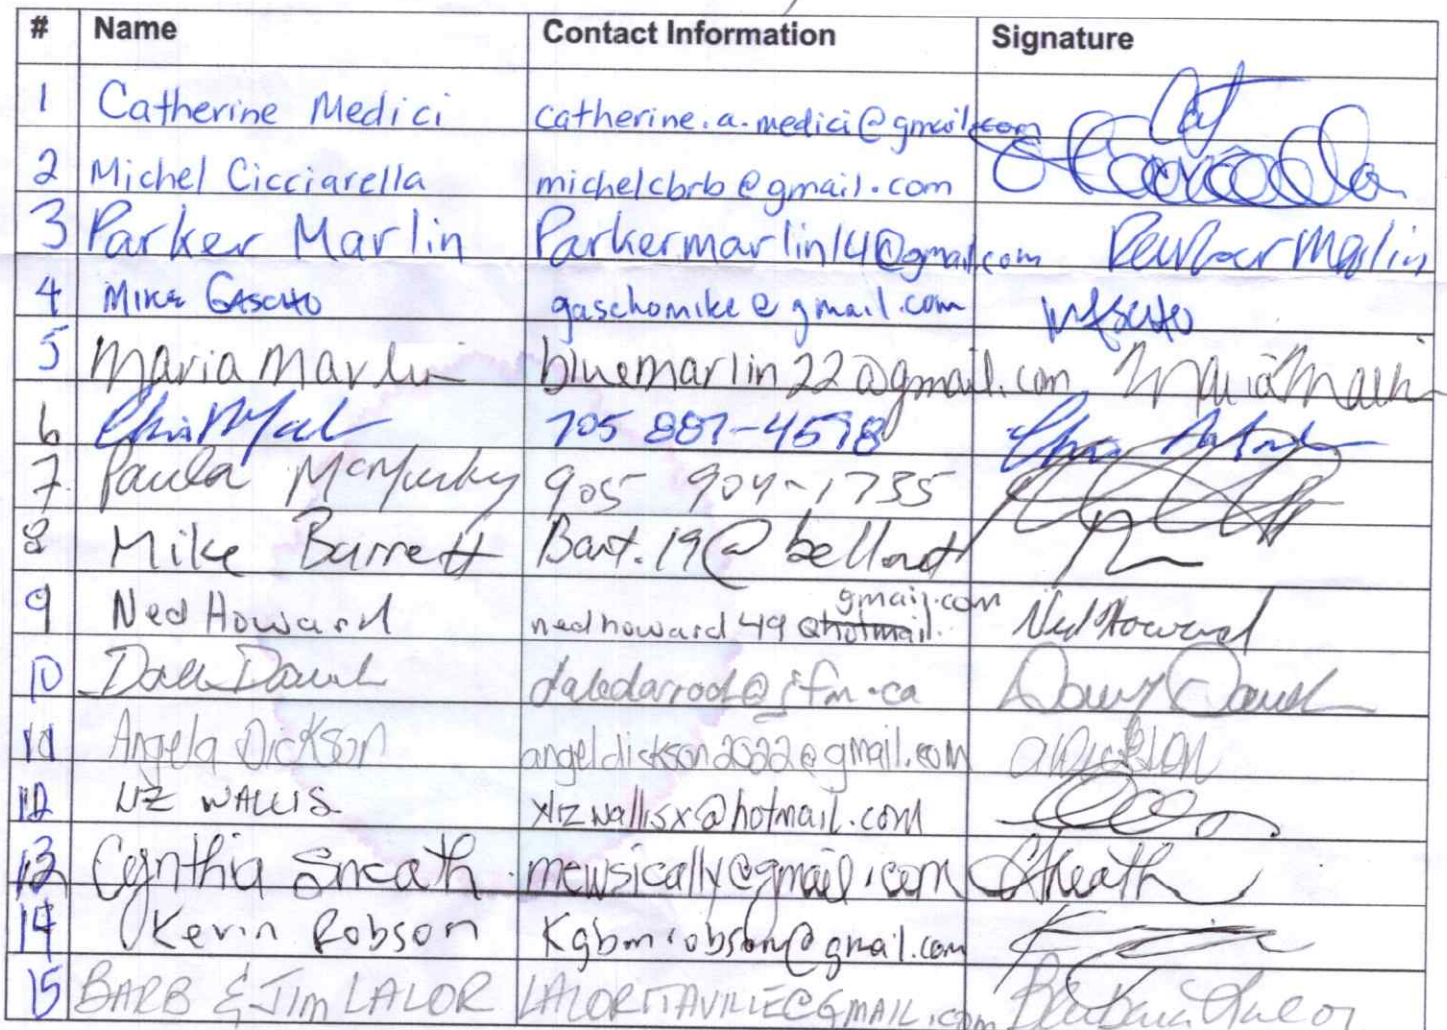 # Name Contact Information Signature
1 Catherine Medici catherine.a.medici@gmail.com Cat
2 Michel Cicciarella michelcbrb@gmail.com
3 Parker Marlin Parkermarlin14@gmail.com Parker Marlin
4 Mike Gascho gaschomike@gmail.com
5 Maria Marlin bluemarlin22@gmail.com Maria Marlin
6 705 887-4598
7. Paula 905 904-1735
8 Mike Barrett Bart.19@bellnet
gmail.com
9 Ned Howard nedhoward49@hotmail. Ned Howard
10
11 Angela Dickson angeldickson2022@gmail.com
12 LIZ WALLIS xlizwallisx@hotmail.com
13 Cynthia Sneath mewsically@gmail.com Sneath
14 Kevin Robson Kgbmrobson@gmail.com
15 BARB & JIM LALOR LALORITAVILLE@GMAIL.com Barbara Lalor